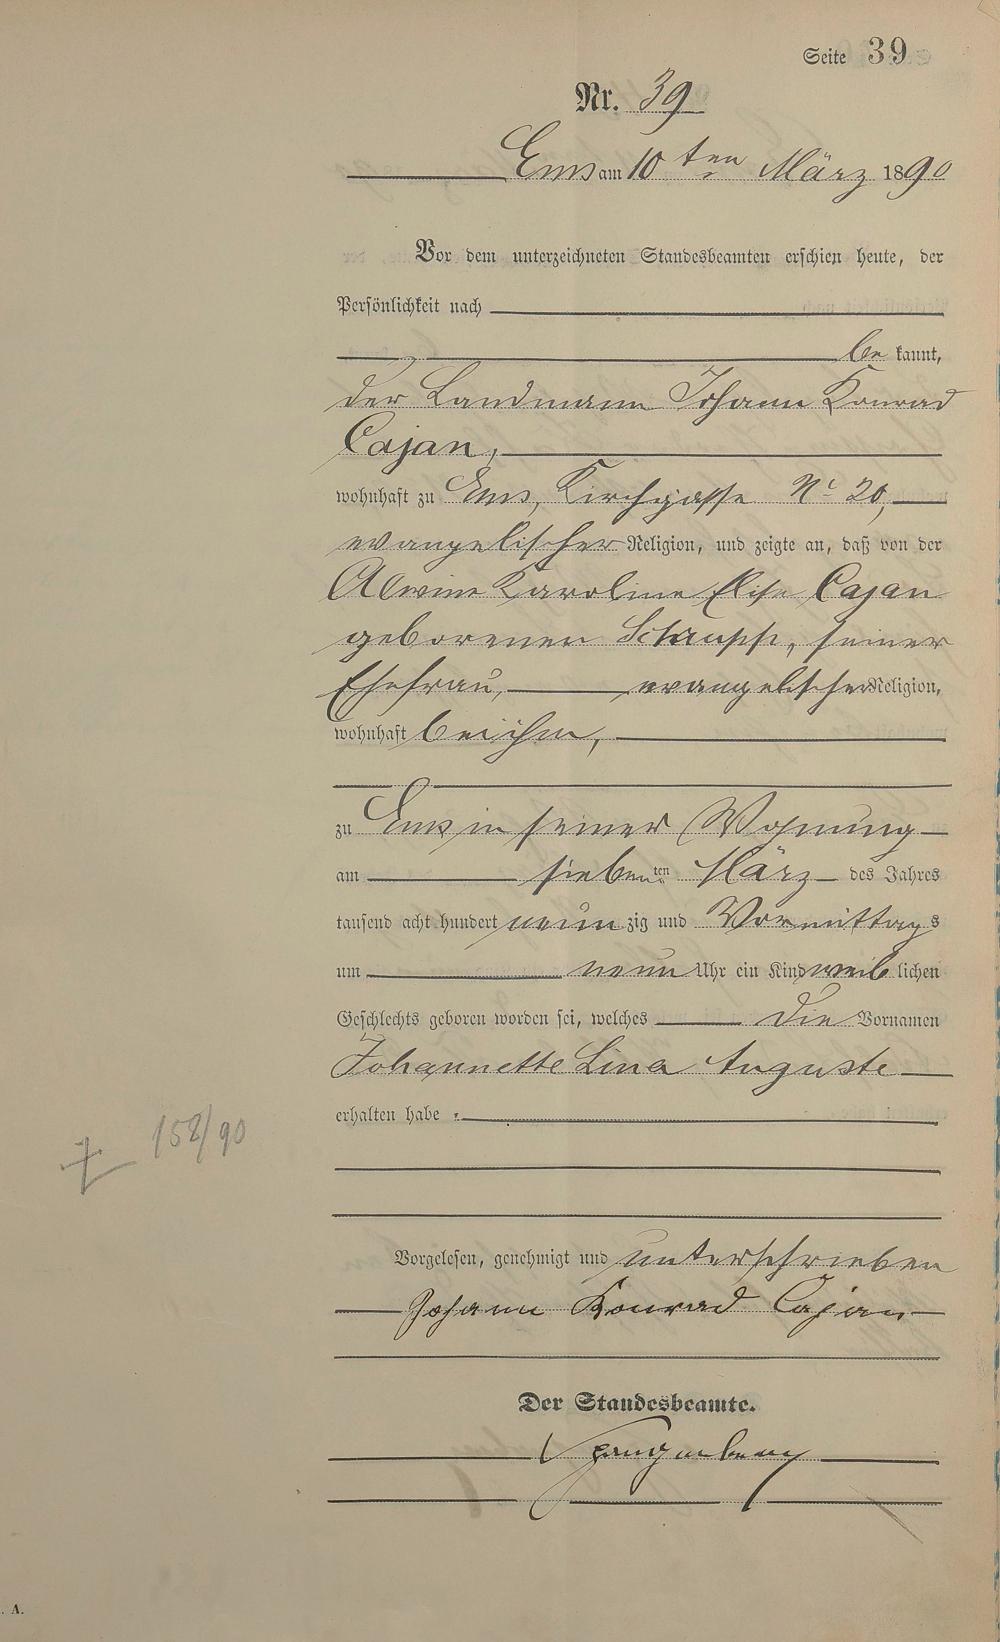 Seite 39
Nr. 39
Ems am 10ten März 1890
Vor dem unterzeichneten Standesbeamten erschien heute, der
Persönlichkeit nach
be kannt,
der Landmann Johann Konrad
Cajan,
wohnhaft zu Ems, Kirchgasse No 20,
evangelischer Religion, und zeigte an, daß von der
Alwine Karoline Elise Cajan
geborenen Schaupp, seiner
Ehefrau, evangelischer Religion,
wohnhaft bei ihm,
zu Ems in seiner Wohnung
am siebenten März des Jahres
tausend acht hundert neun zig und Vormittags
um neun Uhr ein Kind weib lichen
Geschlechts geboren worden sei, welches die Vornamen
Johannette Lina Auguste
erhalten habe.
† 158/90
Vorgelesen, genehmigt und unterschrieben
Johann Konrad Cajan
Der Standesbeamte.
Spangenberg
. A.